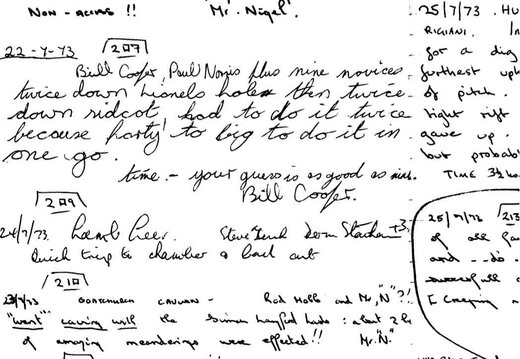 NON-ACCESS !! "Mr. Nigel".
22-7-73 207
Bill Cooper, Paul Norris plus nine novices
twice down Lionels hole then twice
down sidcot, had to do it twice
because party to big to do it in
one go.
time - your guess is as good as mine.
Bill Cooper.
209
24/7/73. Lamb Leer. Steve +3.
Quick trip to chamber & back out
210
GOATCHURCH CAVERN - Rod and Mr, "N"?!
"went" caving with the : about 2 hrs
of amazing meanderings were effected!! Mr. "N".
25/7/73. HU
RIGIANI. In
for a dig
furthest uph
of pitch.
tight rift
gave up.
but probabl
TIME 3½ ho
25/7/73 213
of all
and --do.
successful
[